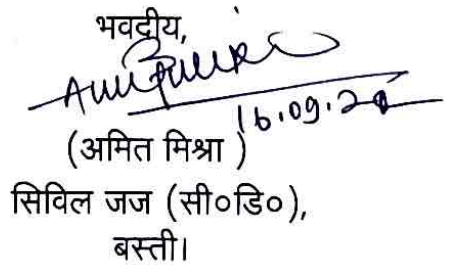 भवदीय,
16.09.2
(अमित मिश्रा )
सिविल जज (सी०डि०),
बस्ती।